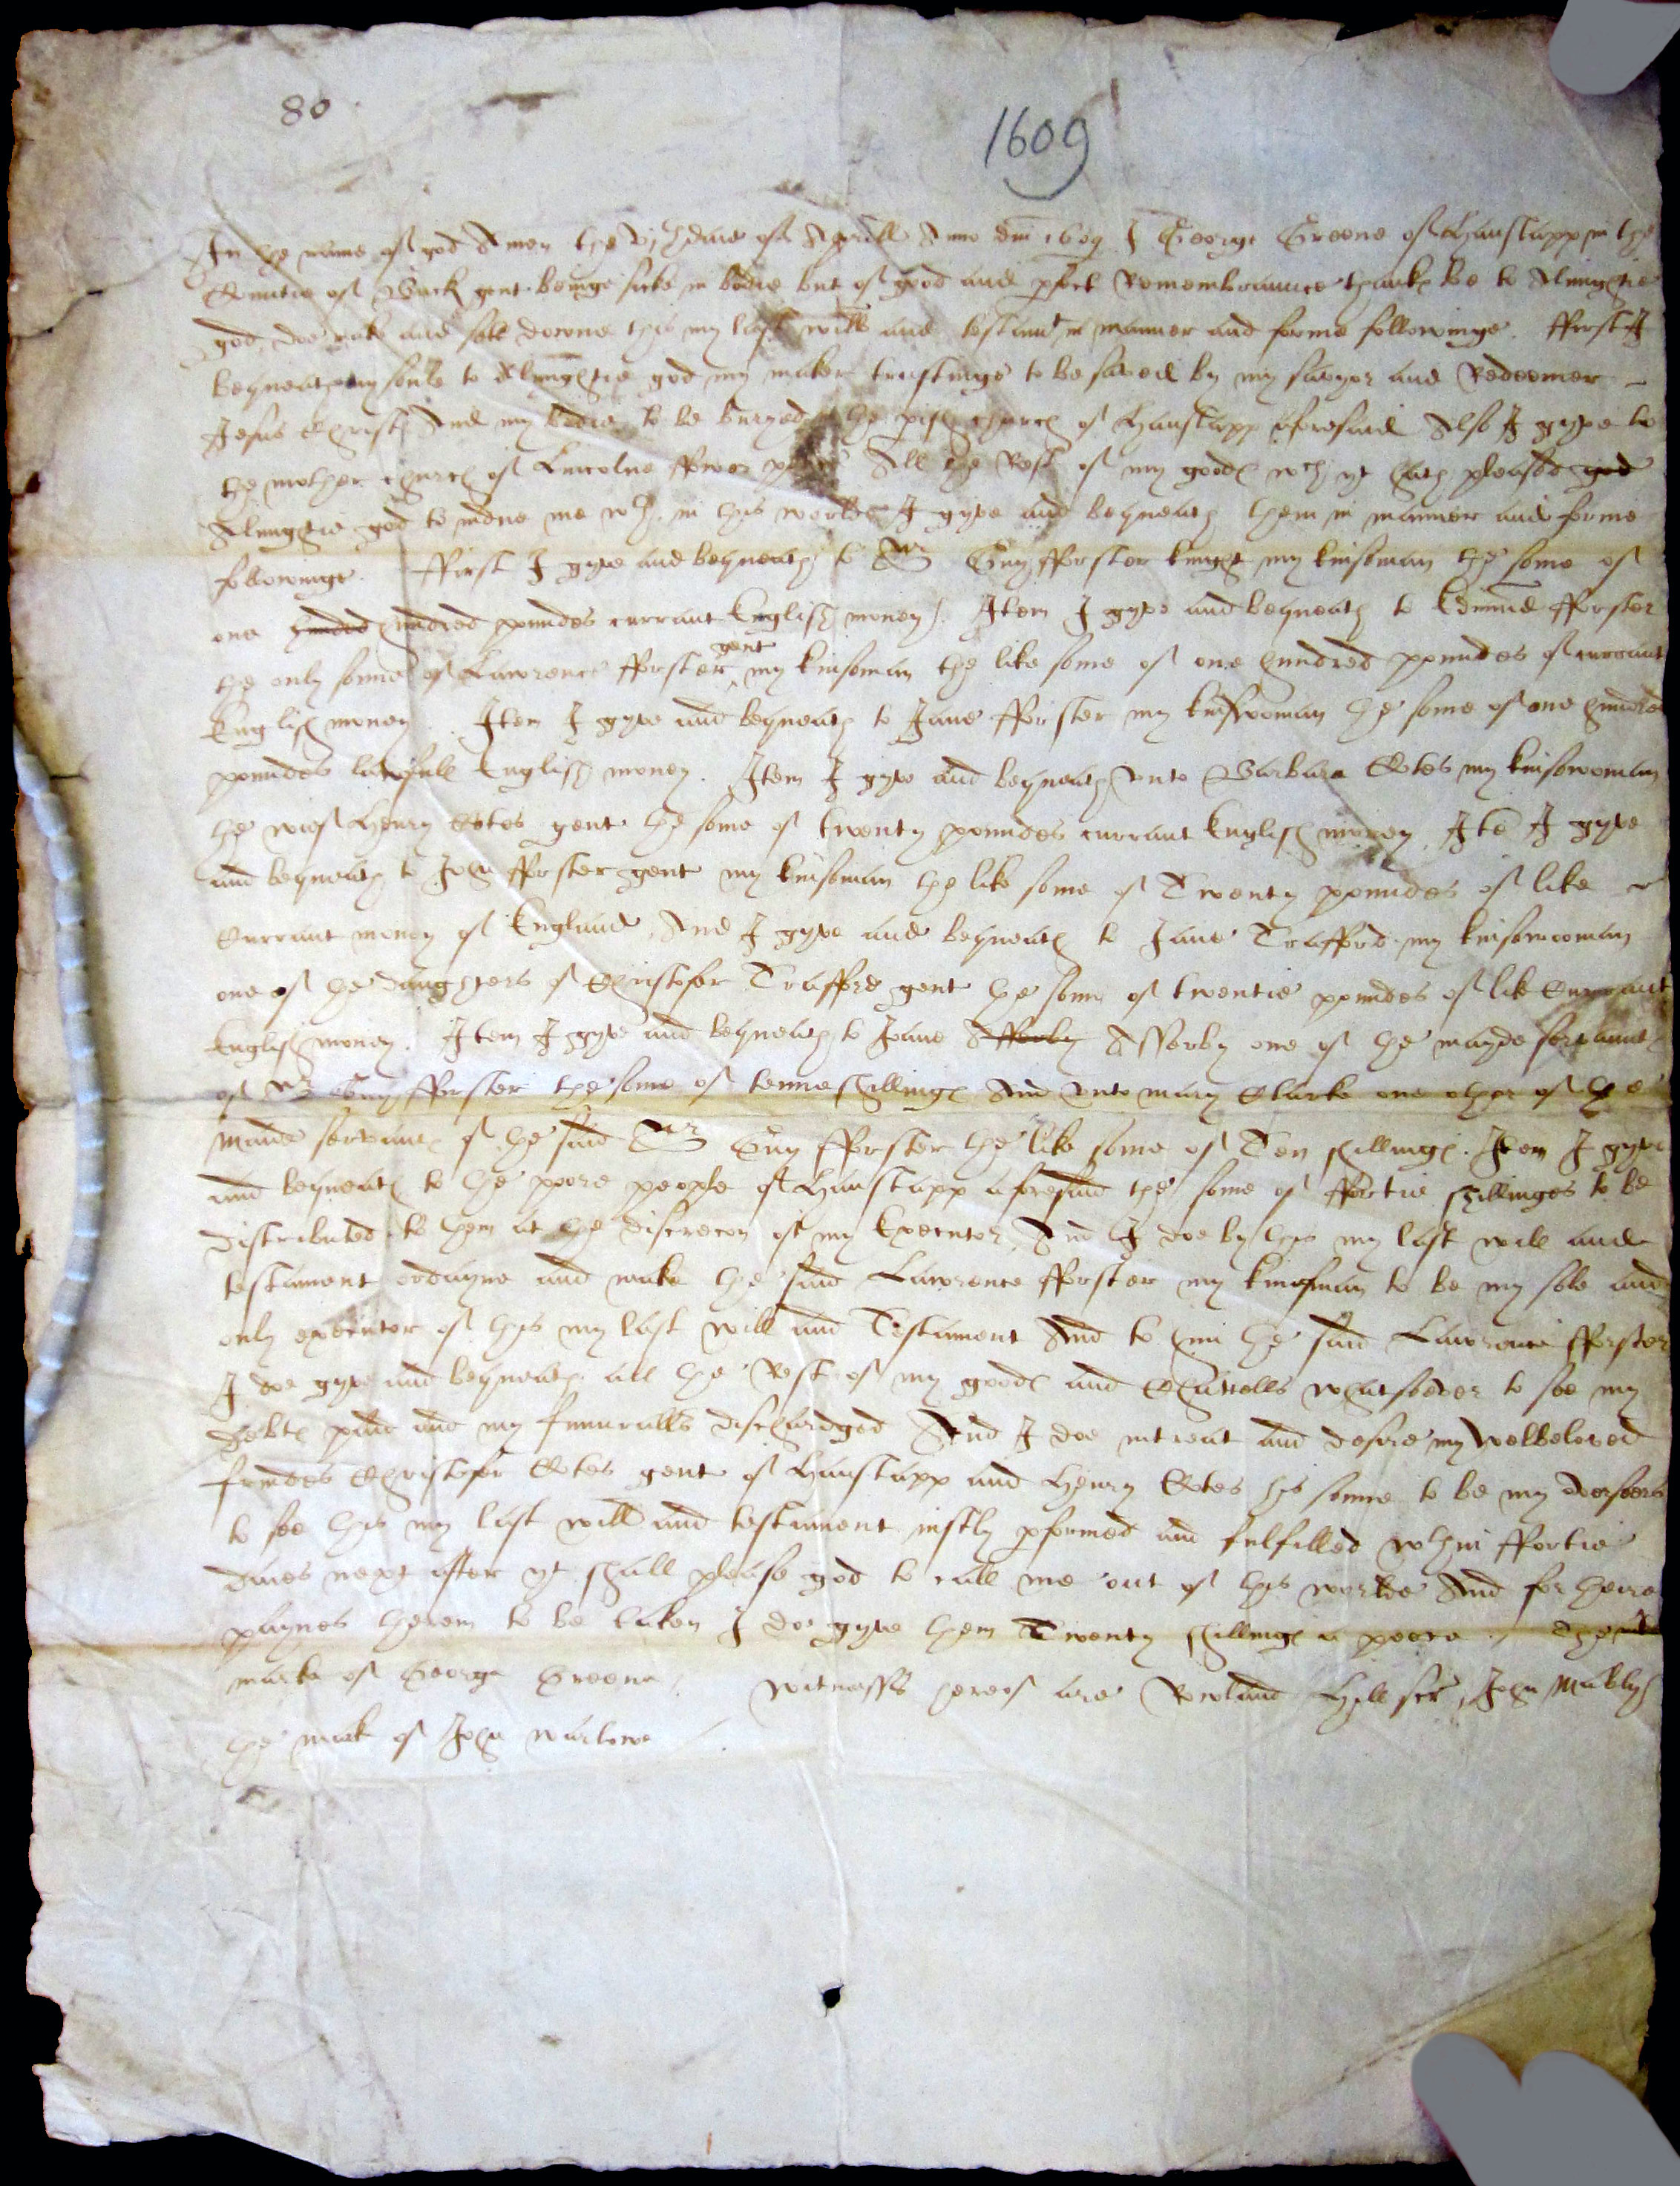 80
1609
In the name of god Amen the vjth daie of Aprill Anno dni 1609 I George Greene of Hanslapp in the
Countie of Buck gent beinge sicke in bodie but of good and pfect Remembraunce thankes be to Almightie
god, doe make and sett downe this my last will and testamt in manner and forme followinge. ffirst I
bequeath my soule to Almightie god my maker trustinge to be saved by my savyor and Redeemer
Jesus Christ And my bodie to be buryed the pish church of Hanslapp aforesaid Also I gyve to
the mother church of Lincolne ffower All the Rest of my goodes wch yt hath pleased god
Almightie god to indue me wth in this worlde I gyve and bequeath them in manner and forme
followinge. ffirst I gyve and bequeath to Sr Guy fforster knight my kinseman the some of
one hunded hundred poundes currant English money. Item I gyve and bequeath to Edmund fforster
the only sonne of Lawrence fforster gent my kinseman the like some of one hundred poundes of currant
English money. Item I gyve and bequeath to Jane fforster my kinswoman the some of one hundred
poundes lawfull English money. Item I gyve and bequeath unto Barbara Cotes my kinsewoman
the wief Henry Cotes gent the some of twenty poundes currant English money, Ite I gyve
and bequeath to John fforster gent my kinseman the like some of Twenty poundes of like
Currant money of England, And I gyve and bequeath to Jane Trafford my kinsewoman
one of the daughters of Christofer Trafford gent the some of twentie poundes of like Currant
English money. Item I gyve and bequeath to Joane Afferby Asserby one of the mayde servauntes
of Sr Guy fforster the some of tenne shillinges And unto Mary Clarke one other of the
Maide servantes of the said Sr Guy fforster the like some of Ten shillinges. Item I gyve
and bequeath to the poore people of Hanslapp aforesaid the some of ffortie shillinges to be
distributed to them at the discrecon of my Executor, And I doe by this my last will and
testament ordayne and make the said Lawrence fforster my kinsman to be my sole and
only executor of this my last will and Testament And to him the said Lawrence fforster
I doe gyve and bequeath all the Rest of my goodes and Chattells whatsoever to see my
debtes paid and my funeralls dischardged And I doe intreat and desire my welbeloved
frindes Christofer Cotes gent of Hanslapp and Henry Cotes his sonne to be my overseers
to see this my last will and testament iustly pformed and fulfilled wthin ffortie
daies next after yt shall please god to call me out of this worlde And for theire
paynes herein to be taken I doe gyve them Twenty shillinges a peece. The
marke of George Greene. Witnesses hereof are Rowland Hill scr, John Mabley
the mark of John Warlowe